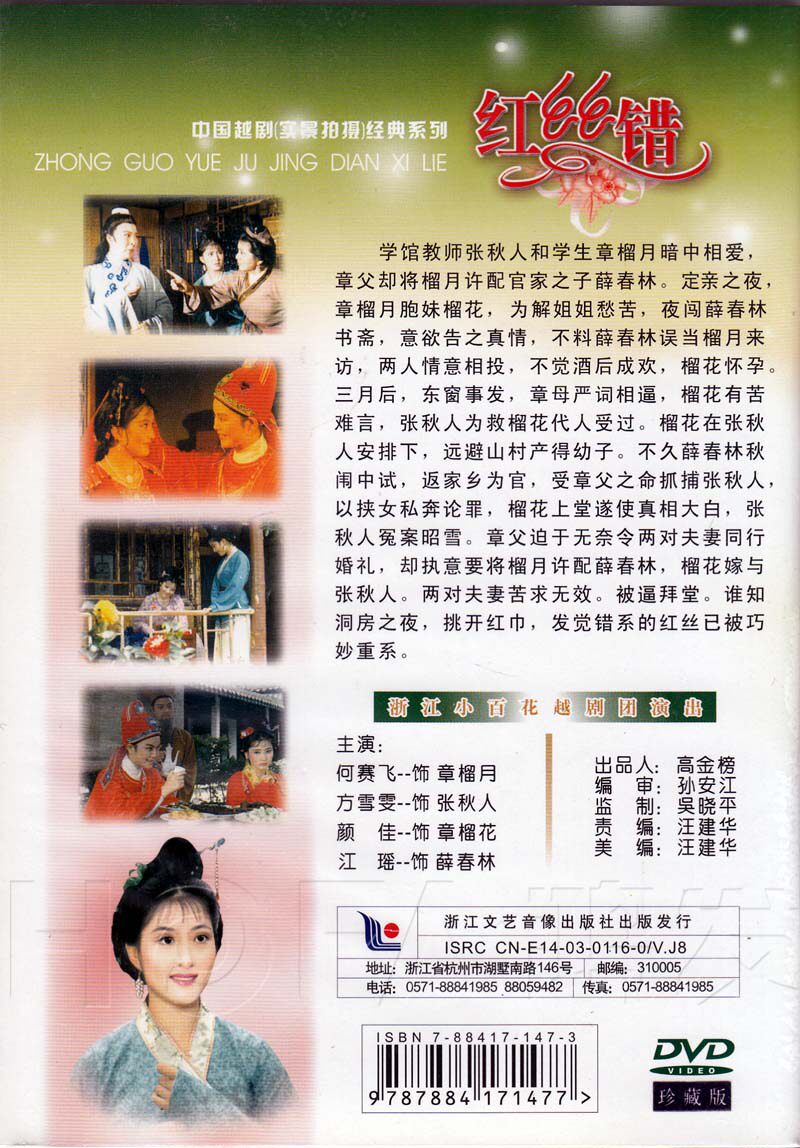 红丝错
中国越剧(实景拍摄)经典系列
ZHONG GUO YUE JU JING DIAN XI LIE
学馆教师张秋人和学生章榴月暗中相爱，
章父却将榴月许配官家之子薛春林。定亲之夜，
章榴月胞妹榴花，为解姐姐愁苦，夜闯薛春林
书斋，意欲告之真情，不料薛春林误当榴月来
访，两人情意相投，不觉酒后成欢，榴花怀孕。
三月后，东窗事发，章母严词相逼，榴花有苦
难言，张秋人为救榴花代人受过。榴花在张秋
人安排下，远避山村产得幼子。不久薛春林秋
闱中试，返家乡为官，受章父之命抓捕张秋人，
以挟女私奔论罪，榴花上堂遂使真相大白，张
秋人冤案昭雪。章父迫于无奈令两对夫妻同行
婚礼，却执意要将榴月许配薛春林，榴花嫁与
张秋人。两对夫妻苦求无效。被逼拜堂。谁知
洞房之夜，挑开红巾，发觉错系的红丝已被巧
妙重系。
浙江小百花越剧团演出
主演：
何赛飞--饰 章榴月
方雪雯--饰 张秋人
颜 佳--饰 章榴花
江 瑶--饰 薛春林
出品人：高金榜
编 审：孙安江
监 制：吴晓平
责 编：汪建华
美 编：汪建华
浙江文艺音像出版社出版发行
ISRC CN-E14-03-0116-0/V.J8
地址：浙江省杭州市湖墅南路146号 邮编：310005
电话：0571-88841985 88059482 传真：0571-88841985
ISBN 7-88417-147-3
9787884171477>
DVD
VIDEO
珍藏版